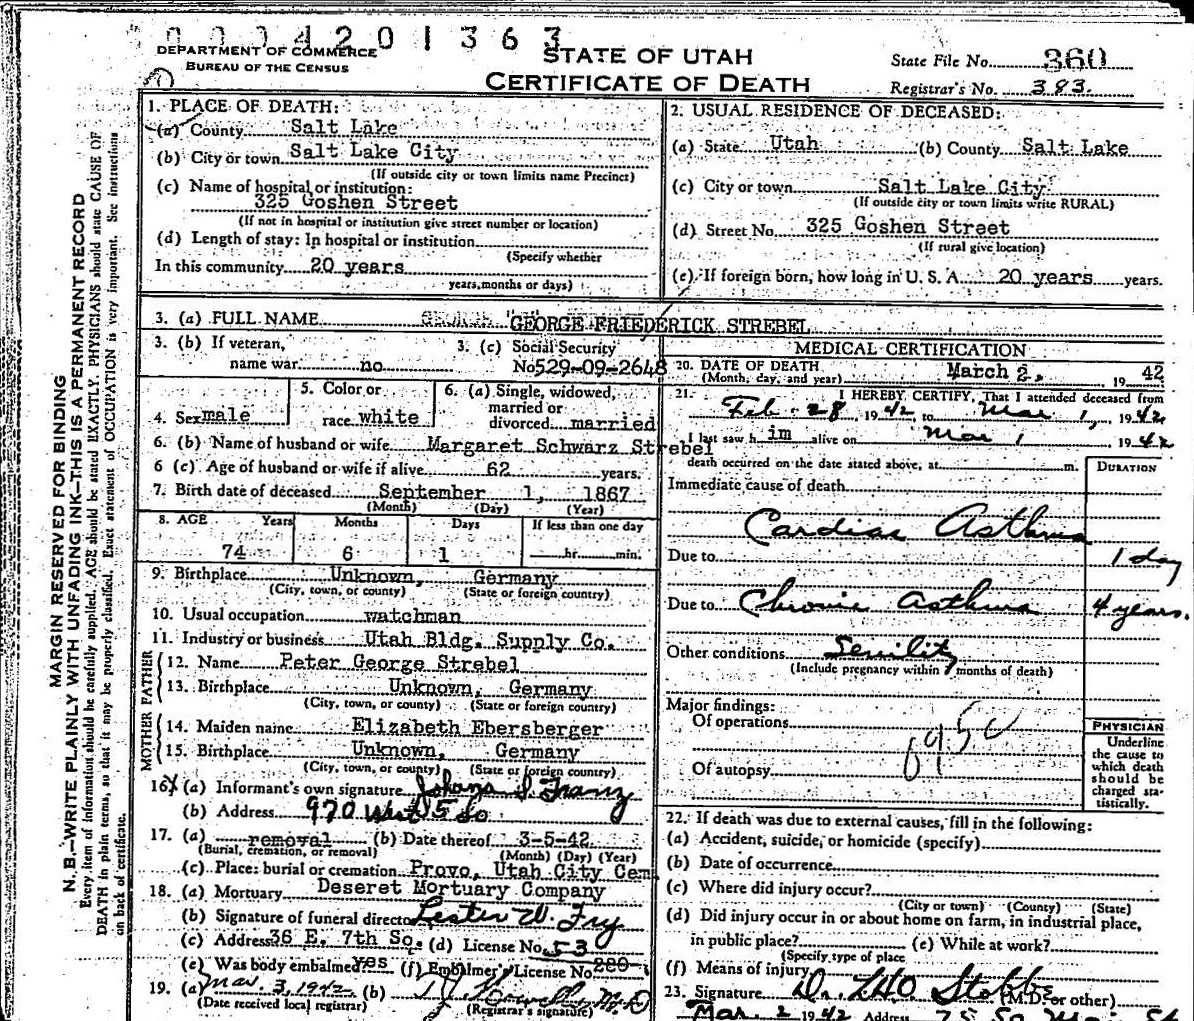 0004201363
DEPARTMENT OF COMMERCE
BUREAU OF THE CENSUS
STATE OF UTAH
CERTIFICATE OF DEATH
State File No. 360
Registrar's No. 383
MARGIN RESERVED FOR BINDING
N. B.—WRITE PLAINLY WITH UNFADING INK—THIS IS A PERMANENT RECORD
Every item of information should be carefully supplied. AGE should be stated EXACTLY. PHYSICIANS should state CAUSE OF
DEATH in plain terms, so that it may be properly classified. Exact statement of OCCUPATION is very important. See instructions
on back of certificate.
1. PLACE OF DEATH:
(a) County Salt Lake
(b) City or town Salt Lake City
(If outside city or town limits name Precinct)
(c) Name of hospital or institution:
325 Goshen Street
(If not in hospital or institution give street number or location)
(d) Length of stay: In hospital or institution
(Specify whether
In this community 20 years
years, months or days)
2. USUAL RESIDENCE OF DECEASED:
(a) State Utah (b) County Salt Lake
(c) City or town Salt Lake City
(If outside city or town limits write RURAL)
(d) Street No. 325 Goshen Street
(If rural give location)
(e) If foreign born, how long in U. S. A. 20 years years.
3. (a) FULL NAME GEORGE FRIEDERICK STREBEL
3. (b) If veteran, name war no
3. (c) Social Security No 529-09-2648
4. Sex male
5. Color or race white
6. (a) Single, widowed, married or divorced married
6. (b) Name of husband or wife Margaret Schwarz Strebel
6 (c) Age of husband or wife if alive 62 years.
7. Birth date of deceased September 1, 1867
(Month) (Day) (Year)
8. AGE Years Months Days If less than one day
74 6 1 hr. min.
9. Birthplace Unknown, Germany
(City, town, or county) (State or foreign country)
10. Usual occupation watchman
11. Industry or business Utah Bldg. Supply Co.
FATHER
12. Name Peter George Strebel
13. Birthplace Unknown, Germany
(City, town, or county) (State or foreign country)
MOTHER
14. Maiden name Elizabeth Ebersberger
15. Birthplace Unknown, Germany
(City, town, or county) (State or foreign country)
16. (a) Informant's own signature Franz
(b) Address 970 West 5 So
17. (a) removal (b) Date thereof 3-5-42
(Burial, cremation, or removal) (Month) (Day) (Year)
(c) Place: burial or cremation Provo, Utah City Cem
18. (a) Mortuary Deseret Mortuary Company
(b) Signature of funeral director Lester W. Fry
(c) Address 36 E. 7th So. (d) License No. 53
(e) Was body embalmed? yes (f) Embalmer's License No
19. (a) Mar. 3, 1942 (b)
(Date received local registrar) (Registrar's signature)
MEDICAL CERTIFICATION
20. DATE OF DEATH
(Month, day, and year) March 2, 19 42
21. I HEREBY CERTIFY, That I attended deceased from
Feb. 28 1942 to Mar 1, 1942
I last saw h im alive on Mar 1 1942
death occurred on the date stated above, at m.
DURATION
Immediate cause of death
Cardiac Asthma
Due to 1 day
Due to Chronic Asthma 4 years.
Other conditions Senility
(Include pregnancy within months of death)
Major findings:
Of operations
Of autopsy
PHYSICIAN
Underline
the cause to
which death
should be
charged sta-
tistically.
22. If death was due to external causes, fill in the following:
(a) Accident, suicide, or homicide (specify)
(b) Date of occurrence
(c) Where did injury occur?
(City or town) (County) (State)
(d) Did injury occur in or about home on farm, in industrial place,
in public place? (e) While at work?
(Specify type of place
(f) Means of injury
23. Signature Dr. Stobbs (M.D. or other)
Mar. 2 1942 Address 75 So